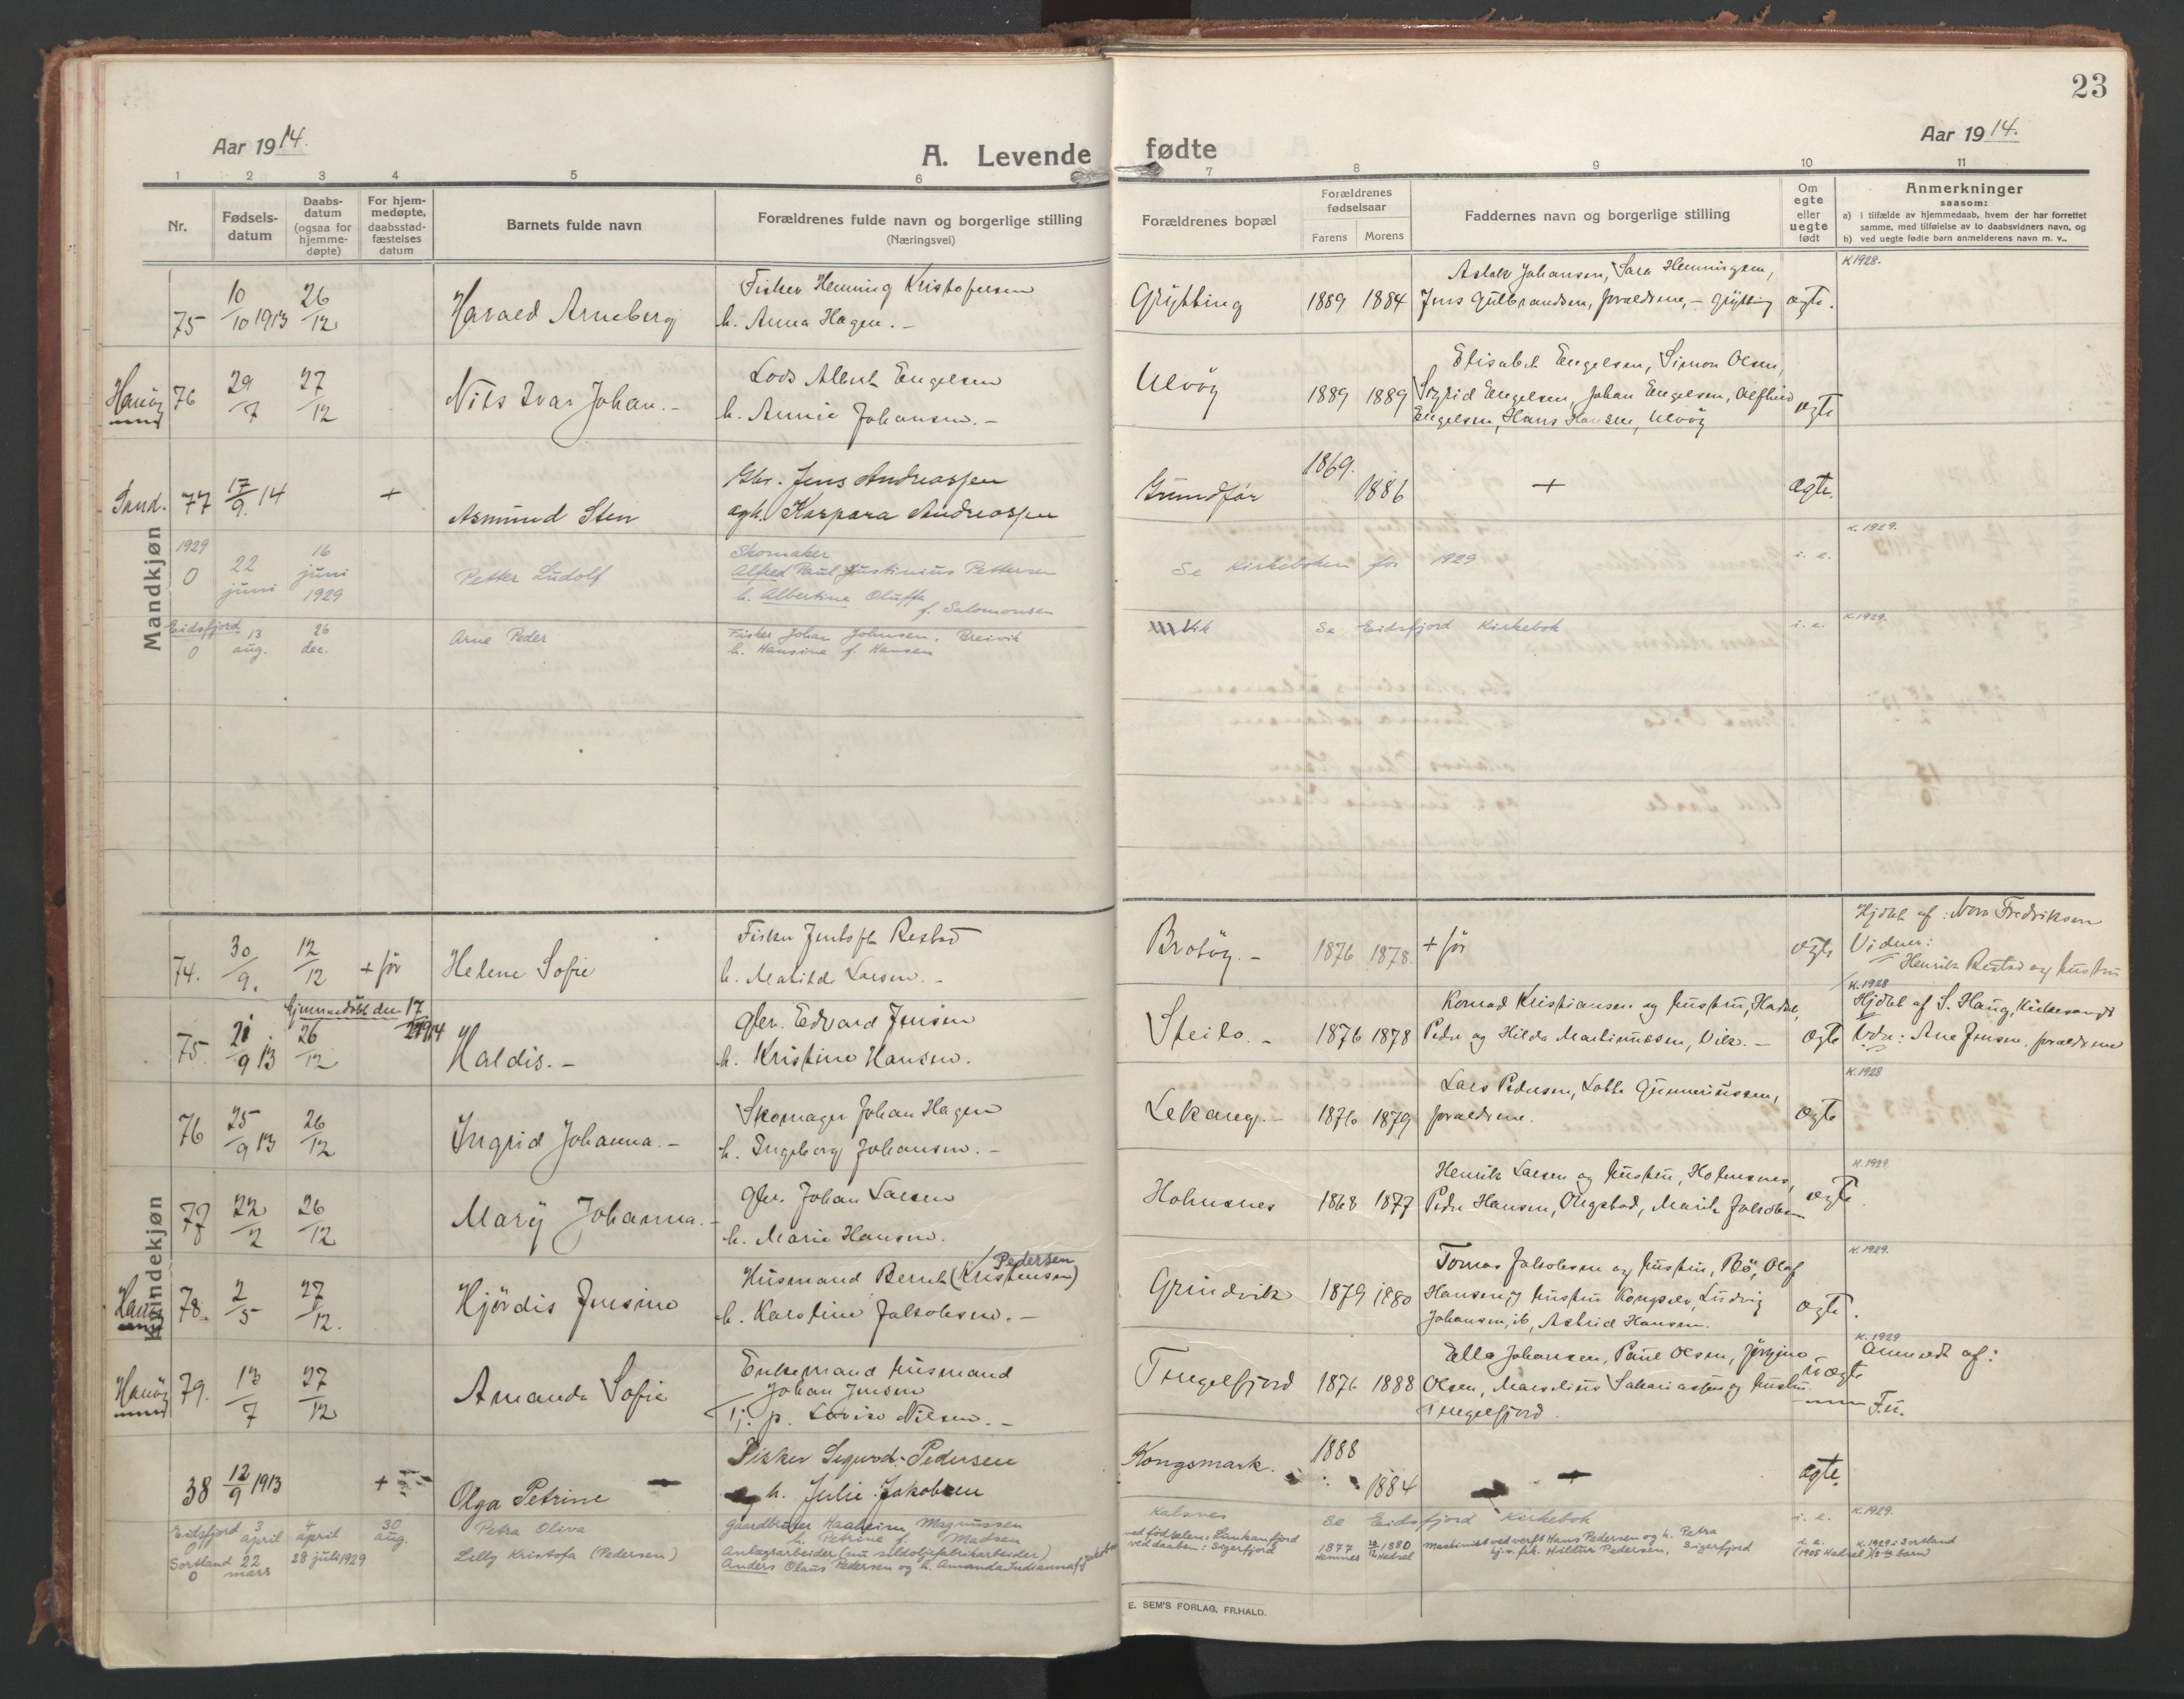 23
Aar 1914.
A. Levende fødte
Aar 1914.
1 2 3 4 5 6 7 8 9 10 11
Nr.
Fødsels-
datum
Daabs-
datum
(ogsaa for
hjemme-
døpte)
For hjem-
medøpte,
daabsstad-
fæstelses
datum
Barnets fulde navn
Forældrenes fulde navn og borgerlige stilling
(Næringsvei)
Forældrenes bopæl
Forældrenes
fødselsaar
Farens Morens
Faddernes navn og borgerlige stilling
Om
egte
eller
uegte
født
Anmerkninger
saasom:
a) i tilfælde av hjemmedaab, hvem der har forrettet
samme, med tilføielse av to daabsvidners navn, og
b) ved uegte fødte barn anmelderens navn m. v..
Mandkjøn
75 10/10 1913 26/12 Harald Arneberg
Fisker Henning Kristofersen
h. Anna Hagen. -
Grytting 1889 1884
Aslak Johansen, Sara Henningsen,
Jens Gulbrandsen, forældrene, - Grytting
ægte.
K 1928.
76 29/7 27/12 Nils Ivar Johan. -
Lods Albert Engelsen
h. Annie Johansen. -
Ulvøy 1889 1889
Elisabet Engelsen, Simon Olsen,
Sigrid Engelsen, Johan Engelsen,
Engelsen, Hans Hansen, Ulvøy
ægte
Sand. 77 17/9. 14 + Asmund Sten
Gbr. Jens Andreassen
og h. Kaspara Andreassen
Grundfør 1869. 1886 + ægte.
1929
0 22 juni 16 juni 1929 Petter Ludolf
Skomaker
Alfred Paul Justinius Pettersen
h. Albertine Oluffa
f. Salomonsen
Se Kirkeboken for 1929 i. e. K. 1929.
Eidsfjord
0 13 aug. 26 dec. Arne Peder
Fisker Johan Johnsen, Breivik
h. Hansine f. Hansen
Vik Se Eidsfjord Kirkebok i. e. K 1929.
Kvindekjøn
74. 30/9. 12/12 + før Helene Sofie
h. Matilde Larsen. -
Brotøy. - 1876 1878. + før ægte
Hjdbt af: Nora Fredriksen
Vidner:
Henrik Restad og hustru
hjemmedøbt den 17
75. 21/9 13 26/12 Haldis. -
Gbr. Edvard Jensen
h. Kristine Hansen.
Steilo. - 1876 1878
Konrad Kristiansen og hustru, Hadsel,
Peder og Hilda Martinussen, Vik. -
ægte
K. 1928
Hjdbt af S. Haug, Kirkesanger
Vdn: Ane Jensen, forældrene
76 25/9 13 26/12 Ingrid Johanna. -
Skomager Johan Hagen
h. Ingeborg Johansen. -
Lekang. - 1876 1879
Lars Pedersen, Lotte Gunneriussen,
forældrene.
ægte
K. 1928
77 22/2 26/12 Mary Johanna. -
Gbr. Johan Larsen
h. Marie Hansen.
Holmsnes 1868 1877
Henrik Larsen og hustru, Holmsnes,
Peder Hansen, Ongstad, Marit Jakobsen
ægte.
K. 1929.
78. 2/5 27/12. Hjørdis Jensine
Husmand Bernt (Kristensen) Pedersen
h. Karstine Jakobsen. -
Grindvik 1879 1880
Tomas Jakobsen og hustru, Bø, Olaf
Hansen og hustru Kongselv, Ludvig
Johansen, ib, Astrid Hansen.
ægte.
K. 1929.
79. 13/7 27/12 Amanda Sofie
Enkemand husmand
Johan Jensen
Tj. p. Lovise Nilsen. -
Tengelfjord 1876 1888
Ella Johansen, Paul Olsen, Jørgine
Olsen, Marselius Sakariassen og hustru
Tengelfjord.
uægte
K. 1929
Anmeldt af:
38 12/9 1913 + Olga Petrine
Fisker Sigurd Pedersen
og h. Julie Jakobsen
Kongsmark. 1888 1884 + ægte.
Eidsfjord
0 3 april 4 april 30 aug. Petra Oliva
gaardbruker Haaheim Magnussen
h. Petrine f. Madsen
Kalsnes Se Eidsfjord Kirkebok i. e. K. 1929.
Sortland
0 22 mars 28 juli 1929 Lilly Kristofa (Pedersen)
Anlægsarbeider (nu sildoljefabrikarbeider)
Anders Olaus Pedersen og h. Amanda Indianna f. Jakobsen
ved fødselen:
ved daaben: Sigerfjord
1877 Hemnes 1880 Hadsel
Maskinist ved verft Hans Pedersen og h. Petra
tj.v. frk. Hildur Pedersen, Sigerfjord
i. e.
(1905 Hadsel)
K. 1929 i Sortland
E. SEM'S FORLAG, FR.HALD.